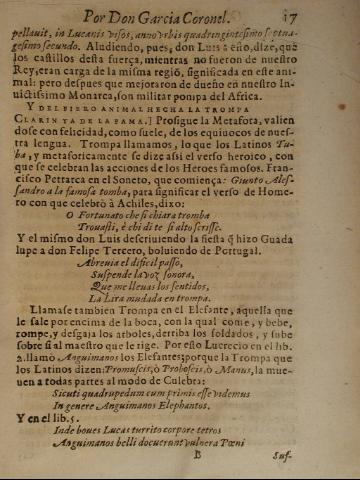 Por Don Garcia Coronel. 17
pellauit, in Lucanis visos, anno vrbis quadringintesimo septua-
gesimo secundo. Aludiendo, pues, don Luis a esto, dize, que
los castillos desta fuerça, mientras no fueron de nuestro
Rey, eran carga de la misma regiõ, significada en este ani-
mal: pero despues que mejoraron de dueño en nuestro In
uictissimo Monarca, son militar pompa del Africa.
Y DEL FIERO ANIMAL HECHA LA TROMPA
CLARIN YA DE LA FAMA.] Prosigue la Metafora, valien
dose con felicidad, como suele, de los equiuocos de nues-
tra lengua. Trompa llamamos, lo que los Latinos Tu-
ba, y metaforicamente se dize assi el verso heroico, con
que se celebran las acciones de los Heroes famosos. Fran-
cisco Petrarca en el Soneto, que comiença: Giunto Ales-
sandro a la famosa tomba, para significar el verso de Home-
ro con que celebrò à Achiles, dixo:
O Fortunato che si chiara tromba
Trouasti, è chi di te si alto scrisse.
Y el mismo don Luis descriuiendo la fiesta q̃ hizo Guada
lupe a don Felipe Tercero, boluiendo de Portugal.
Abreuia el dificil passo,
Suspende la voz sonora,
Que me lleuas los sentidos,
La Lira mudada en trompa.
Llamase tambien Trompa en el Elefante, aquella que
le sale por encima de la boca, con la qual come, y bebe,
rompe, y desgaja los arboles, derriba los soldados, y sube
sobre si al maestro que le rige. Por esto Lucrecio en el lib.
2. llamò Anguimanos los Elefantes; porque la Trompa que
los Latinos dizen: Promuscis, ò Proboscis, ò Manus, la mue-
uen a todas partes al modo de Culebra:
Sicuti quadrupedum cum primis esse videmus
In genere Anguimanos Elephantos.
Y en el lib. 5.
Inde boues Lucas turrito corpore tetros
Anguimanos belli docuerunt vulnera Pœni
B Suf-